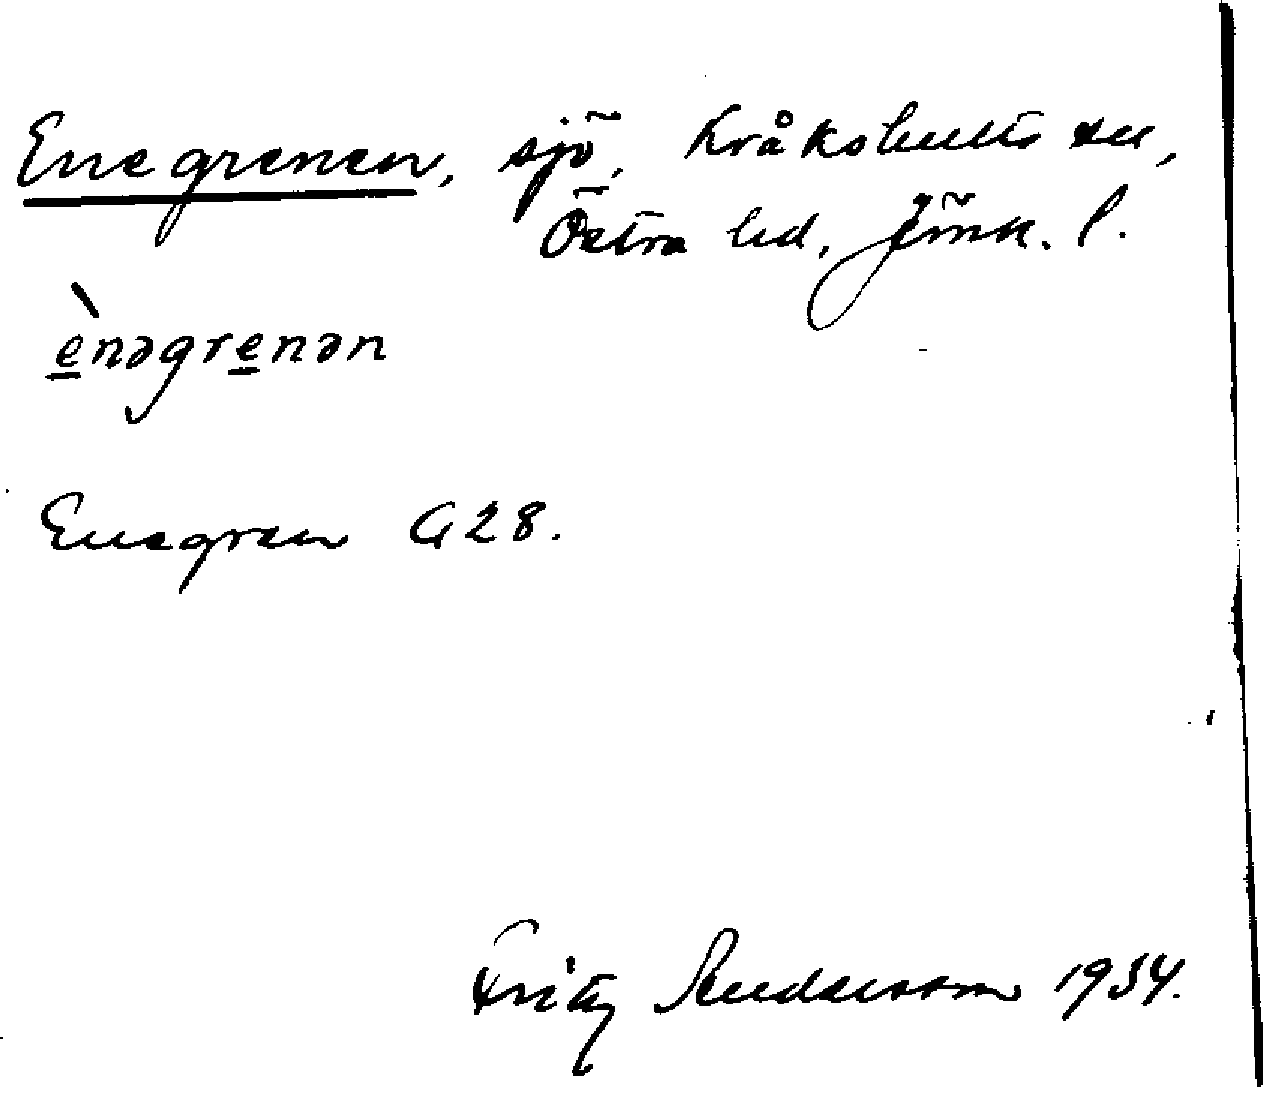 Enegrenen, sjö, Kråkshults sn,
Östra hd, Jönk. l.
è̱nəgre̱nən
Enegren G 28.
Fritz Andersson 1934.